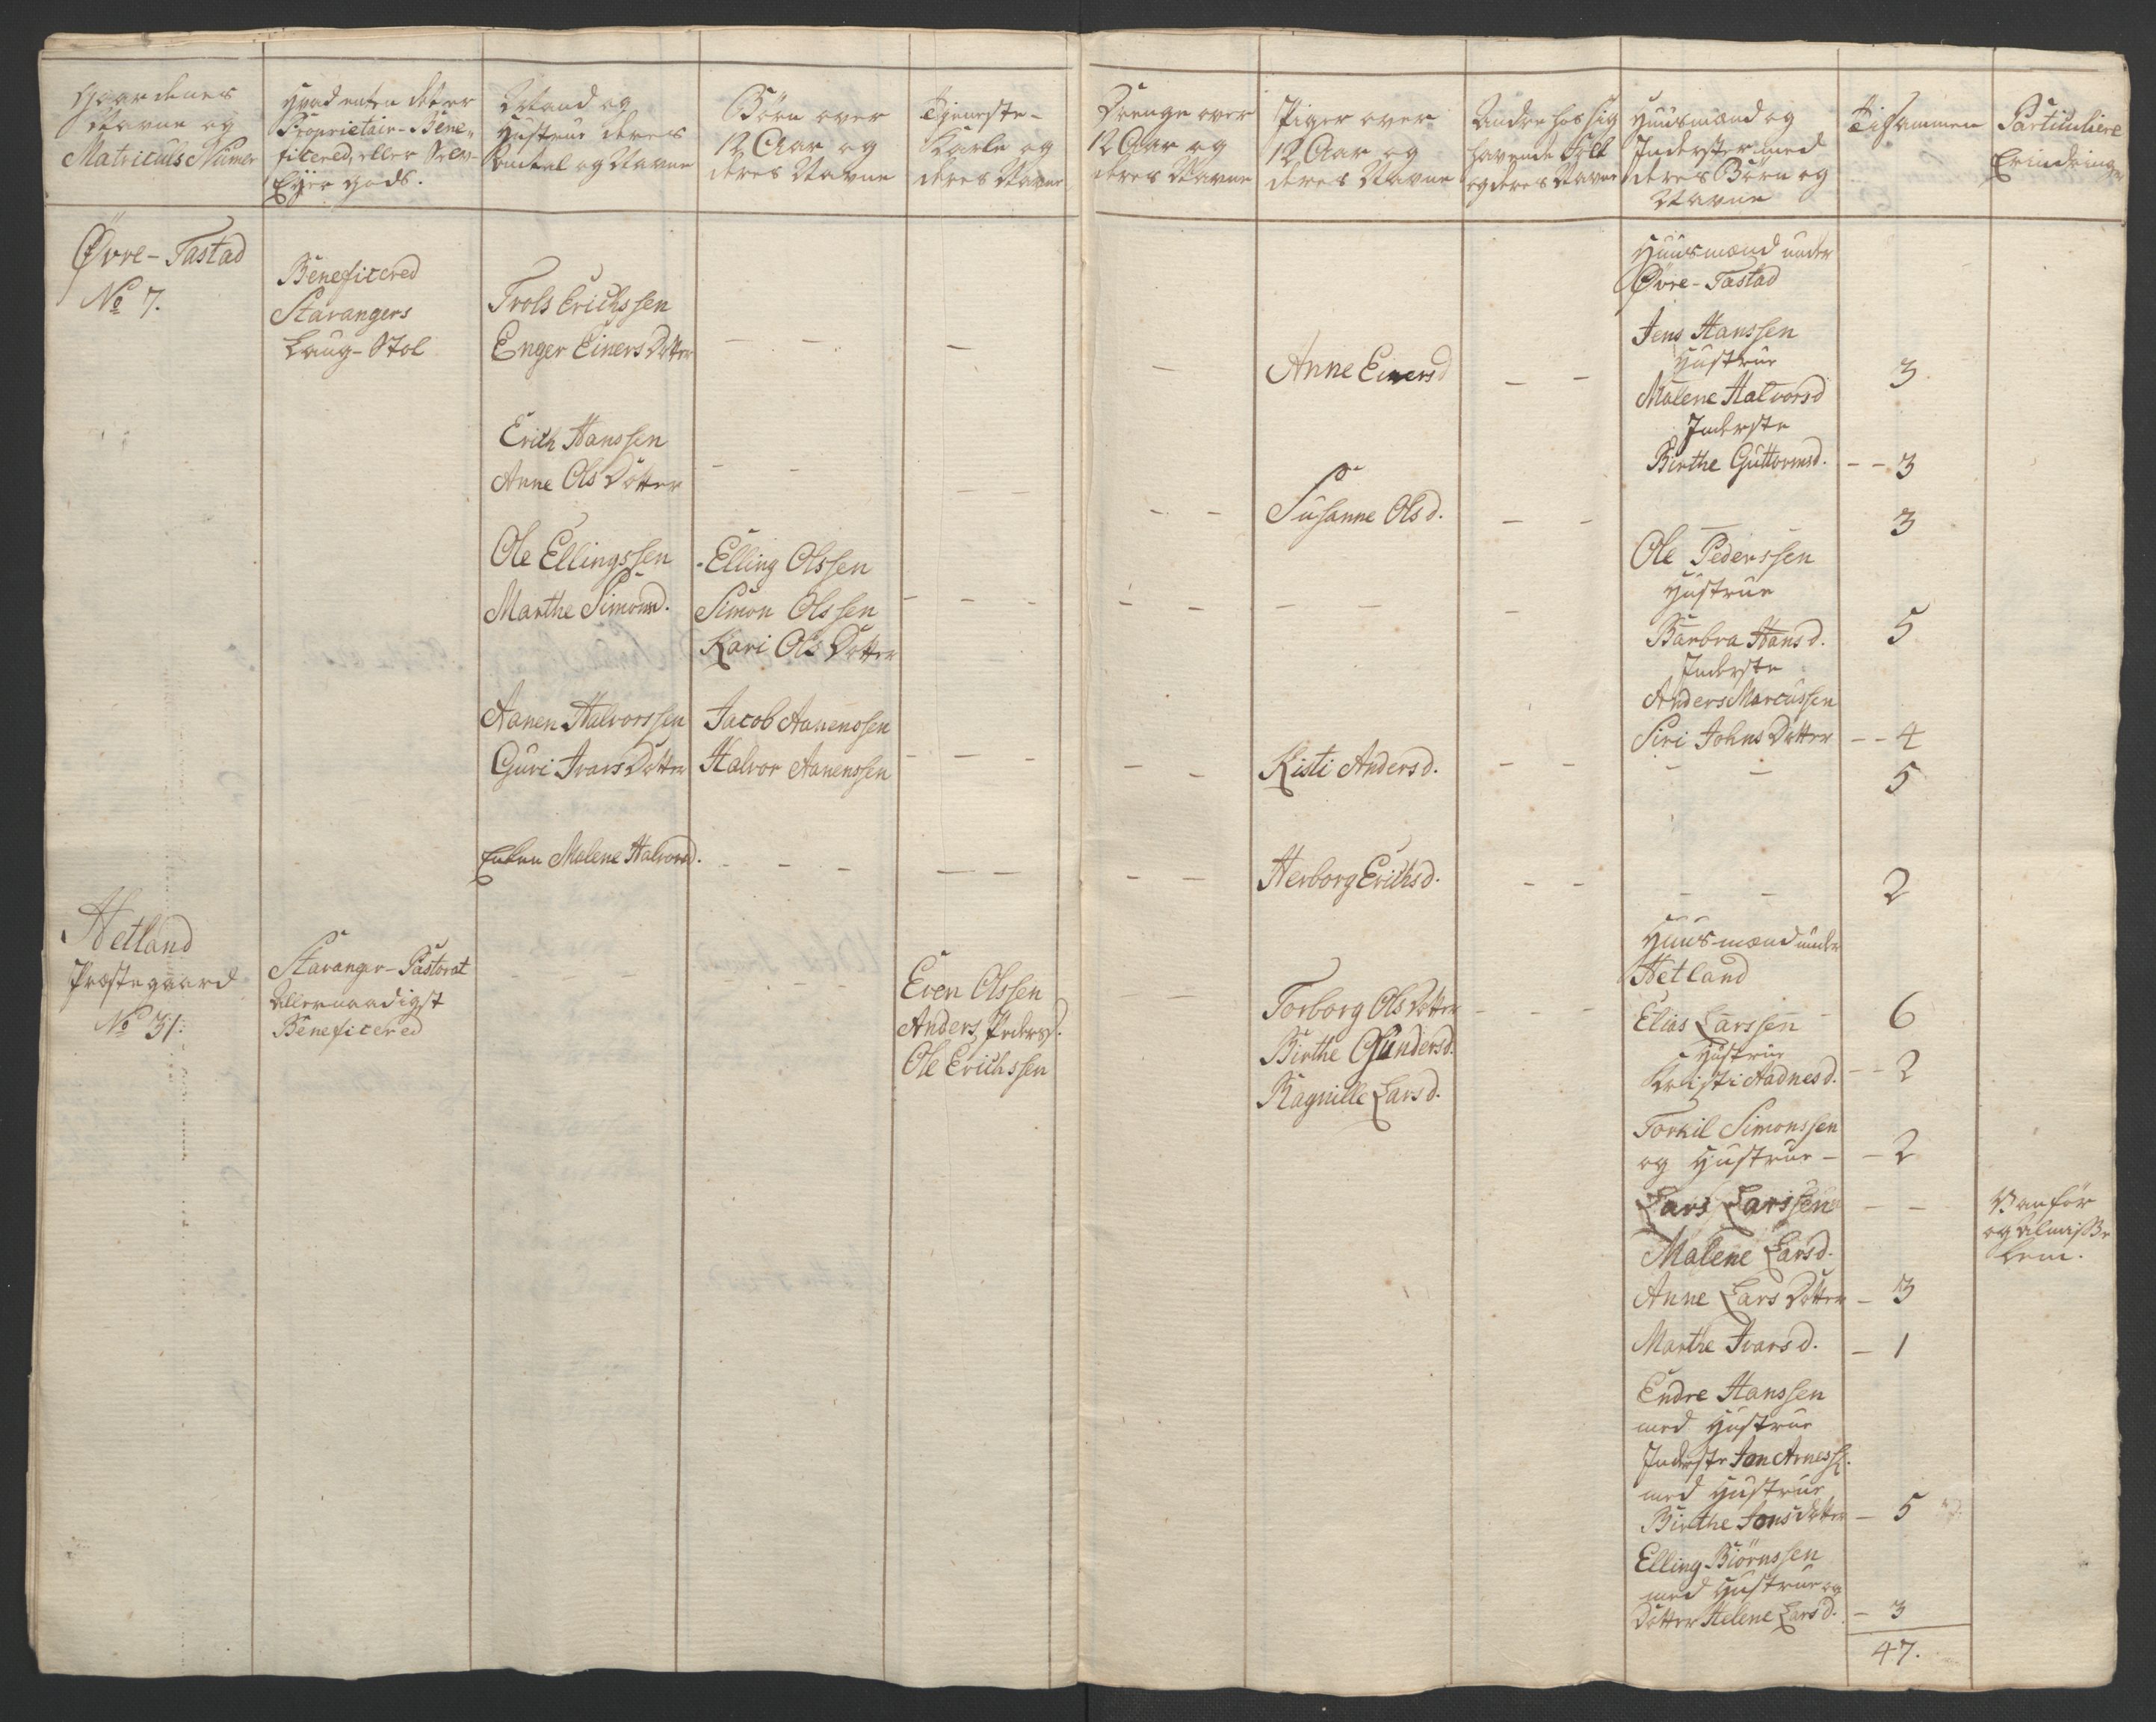 Gaardenes
Navne og
Matriculs Numer
Hvad enten det er
Proprietair-Bene-
ficered, eller Selv-
Ejer Gods.
Mand og
Hustrue deres
Antal og Navne
Börn over
12 Aar og
deres Navne
Tjeneste-
Karle og
deres Navne
Drenge over
12 Aar og
deres Navne
Piger over
12 Aar og
deres Navne
Andre hos sig
havende Folk
og deres Navne
Huusmænd og
Inderster med
deres Börn og
Navne
Tilsammen
Particuliere
Erindringer
Øvre-Tastad
No 7.
Beneficered
Stavangers
Laug-Stol
Trols Erichssen
Enger Einers Dotter
Anne Einersd
Huusmænd under
Øvre-Tastad
Jens Hanssen
Hustrue
Malene Halvorsd
3
Inderste
Birthe Guttormsd. - - 3
Erich Hanssen
Anne Ols Dotter
Susanne Olsd.
3
Ole Ellingssen
Marthe Simonsd.
Elling Olssen
Simon Olssen
Kari Ols Dotter
Ole Pederssen
Hustrue
Barbra Hansd.
5
Inderste
Anders Marcussen
Siri Johns Dotter - - 4
Aanen Halvorssen
Guri Ivars Dotter
Jacob Aanenssen
Halvor Aanenssen
Kisti Andersd.
5
Enken Malene Halvorsd.
Herborg Erichsd.
2
Hetland
Præstegaard
No 31.
Stavanger-Pastorat
Allernaadigst
Beneficered
Even Olssen
Anders Peders.
Ole Erichssen
Torborg Ols Dotter
Birthe Gundersd.
Ragnille Larsd.
Huusmænd under
Hetland
6
Elias Larssen
Hustrue
Kristi Aadnesd. - - 2
Torkil Simonssen
og Hustrue - - 2
Lars Larssen - -
Vanför
og Almisse
Lem.
Malene Larsd.
Anne Lars Dotter - 3
Marthe Ivarsd. - 1
Endre Hanssen
med Hustrue
Inderste Jon Arness.
med Hustrue
Birthe Jons Dotter - 5
Elling Biörnssen
med Hustrue og
Dotter Helene Larsd. - 3
47.